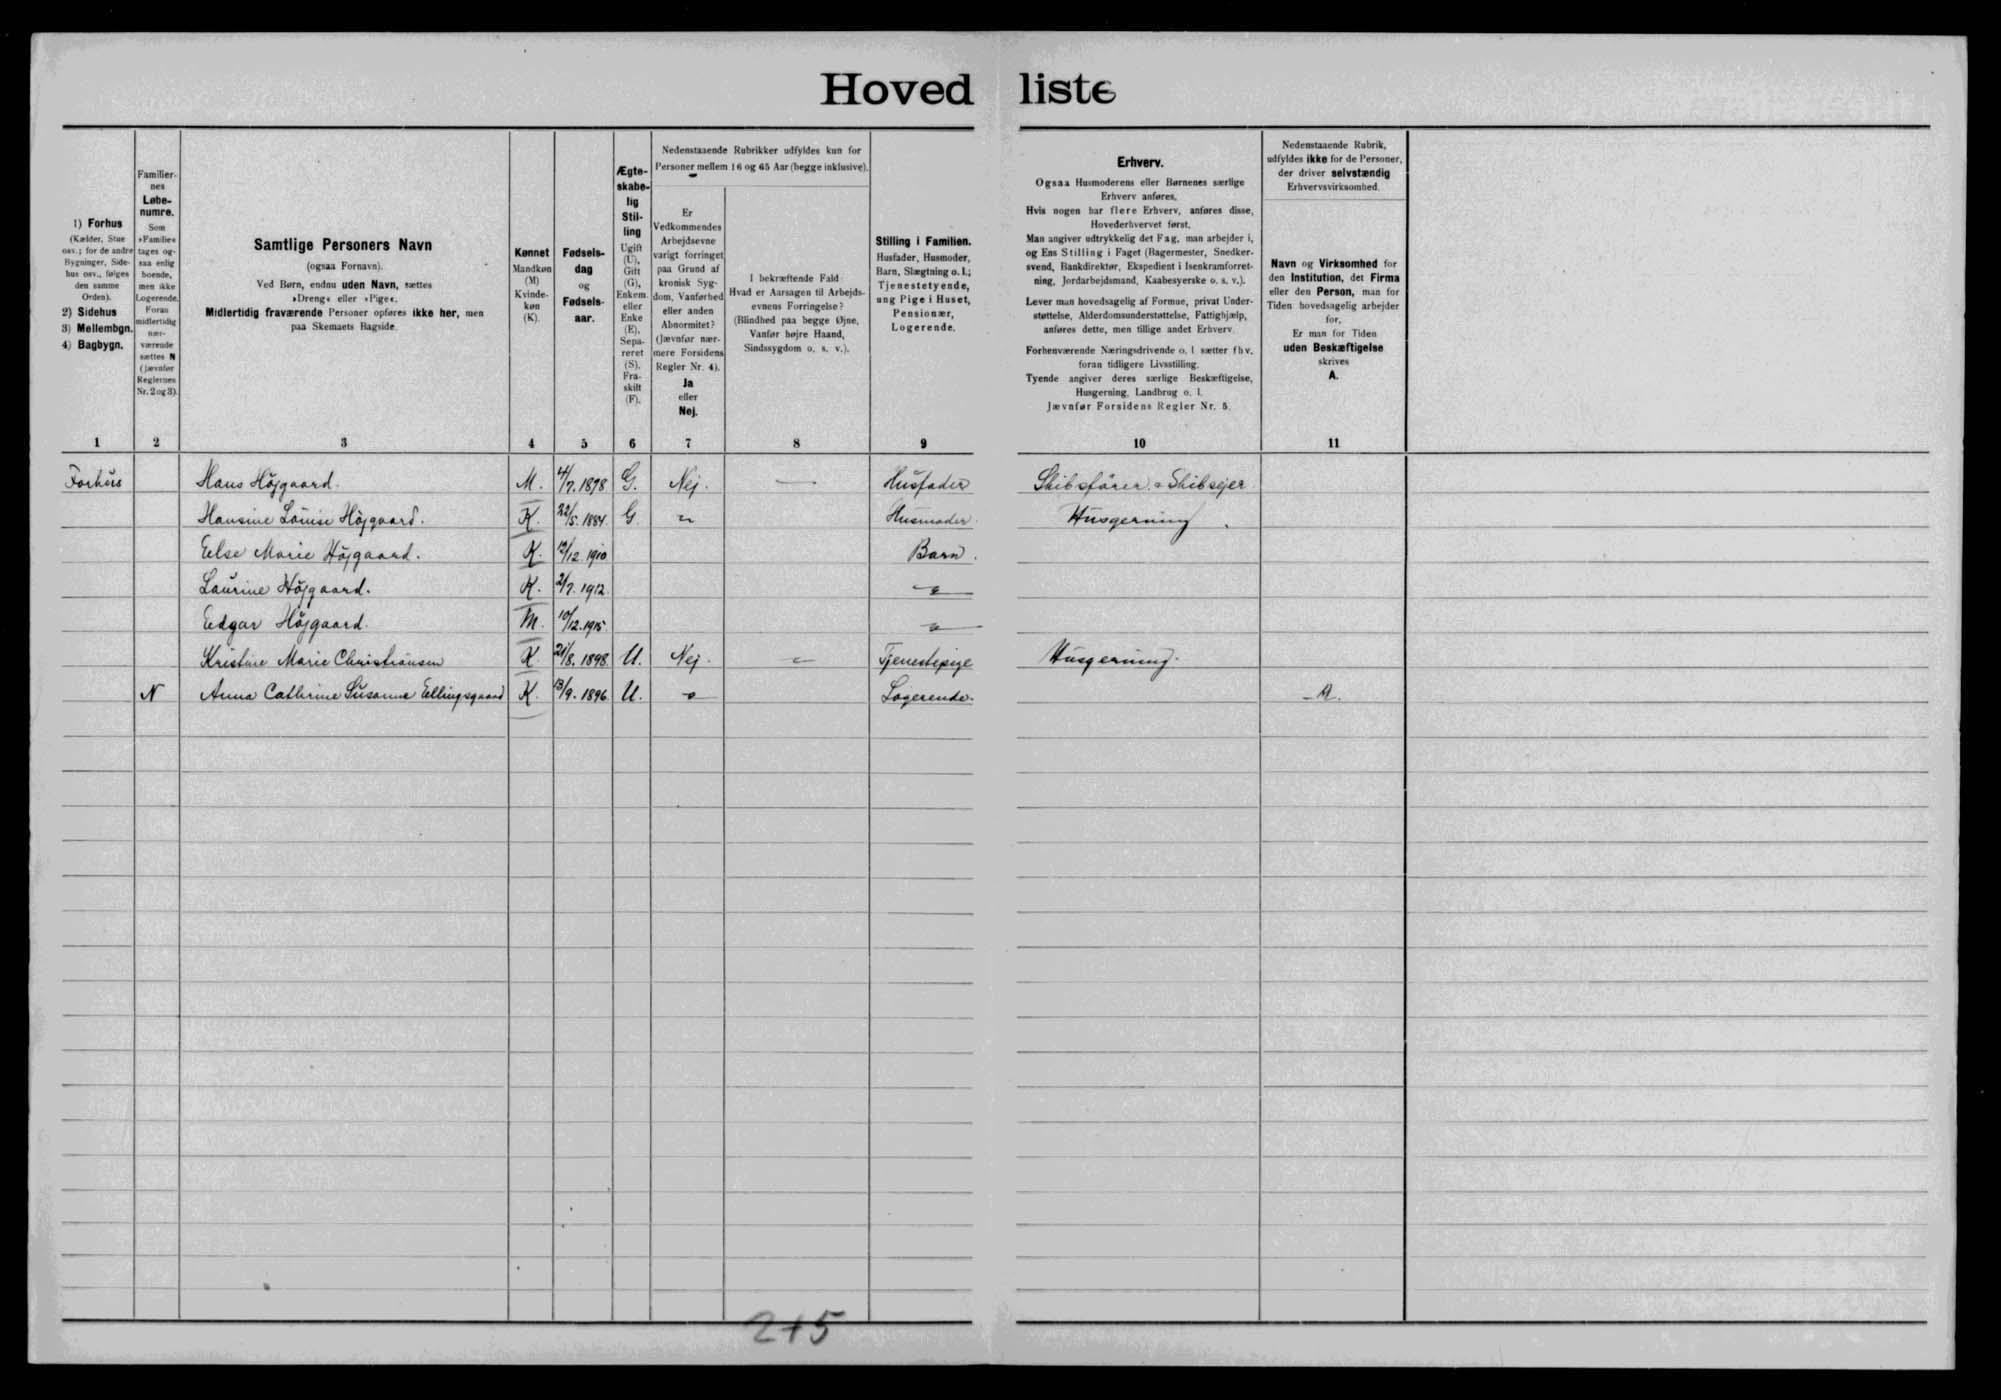 Hoved liste
1) Forhus
(Kælder, Stue
osv.; for de andre
Bygninger, Side-
hus osv., følges
den samme
Orden).
2) Sidehus
3) Mellembgn.
4) Bagbygn.
Familier-
nes
Løbe-
numre.
Som
»Familie«
tages og-
saa enlig
boende,
men ikke
Logerende.
Foran
midlertidig
nær-
værende
sættes N
(jævnfør
Reglernes
Nr. 2 og 3).
Samtlige Personers Navn
(ogsaa Fornavn).
Ved Børn, endnu uden Navn, sættes
»Dreng« eller »Pige«.
Midlertidig fraværende Personer opføres ikke her, men
paa Skemaets Bagside.
Kønnet
Mandkøn
(M)
Kvinde-
køn
(K).
Fødsels-
dag
og
Fødsels-
aar.
Ægte-
skabe-
lig
Stil-
ling
Ugift
(U),
Gift
(G),
Enkem.
eller
Enke
(E),
Sepa-
reret
(S),
Fra-
skilt
(F).
Nedenstaaende Rubrikker udfyldes kun for
Personer mellem 16 og 65 Aar (begge inklusive).
Er
Vedkommendes
Arbejdsevne
varigt forringet
paa Grund af
kronisk Syg-
dom, Vanførhed
eller anden
Abnormitet?
(Jævnfør nær-
mere Forsidens
Regler Nr. 4).
Ja
eller
Nej.
I bekræftende Fald:
Hvad er Aarsagen til Arbejds-
evnens Forringelse?
(Blindhed paa begge Øjne,
Vanfør højre Haand,
Sindssygdom o. s. v.).
Stilling i Familien.
Husfader, Husmoder,
Barn, Slægtning o. l.;
Tjenestetyende,
ung Pige i Huset,
Pensionær,
Logerende.
Erhverv.
Ogsaa Husmoderens eller Børnenes særlige
Erhverv anføres.
Hvis nogen har flere Erhverv, anføres disse,
Hovederhvervet først.
Man angiver udtrykkelig det Fag, man arbejder i,
og Ens Stilling i Faget (Bagermester, Snedker-
svend, Bankdirektør, Ekspedient i Isenkramforret-
ning, Jordarbejdsmand, Kaabesyerske o. s. v.).
Lever man hovedsagelig af Formue, privat Under-
støttelse, Alderdomsunderstøttelse, Fattighjælp,
anføres dette, men tillige andet Erhverv.
Forhenværende Næringsdrivende o. l. sætter fhv.
foran tidligere Livsstilling.
Tyende angiver deres særlige Beskæftigelse,
Husgerning, Landbrug o. l.
Jævnfør Forsidens Regler Nr. 5.
Nedenstaaende Rubrik,
udfyldes ikke for de Personer,
der driver selvstændig
Erhvervsvirksomhed.
Navn og Virksomhed for
den Institution, det Firma
eller den Person, man for
Tiden hovedsagelig arbejder
for.
Er man for Tiden
uden Beskæftigelse
skrives
A.
1 2 3 4 5 6 7 8 9 10 11
Forhus Hans Höjgaard. M. 4/7. 1878 G. Nej. — Husfader Skibsfører. & Skibsejer
Hansine Louise Höjgaard. K. 22/5. 1884. G. " Husmoder. Husgerning.
Eelse Marie Höjgaard. K. 12/12 1910 Barn.
Laurine Höjgaard. K. 2/7. 1912. "
Edgar Höjgaard. M. 10/12. 1915. "
Kristine Marie Christiansen K. 21/8. 1898. U. Nej. — Tjenestepige Husgerning.
N Anna Cathrine Susanne Eellingsgaard K. 13/9. 1896. U. " Logerende. A.
2+5